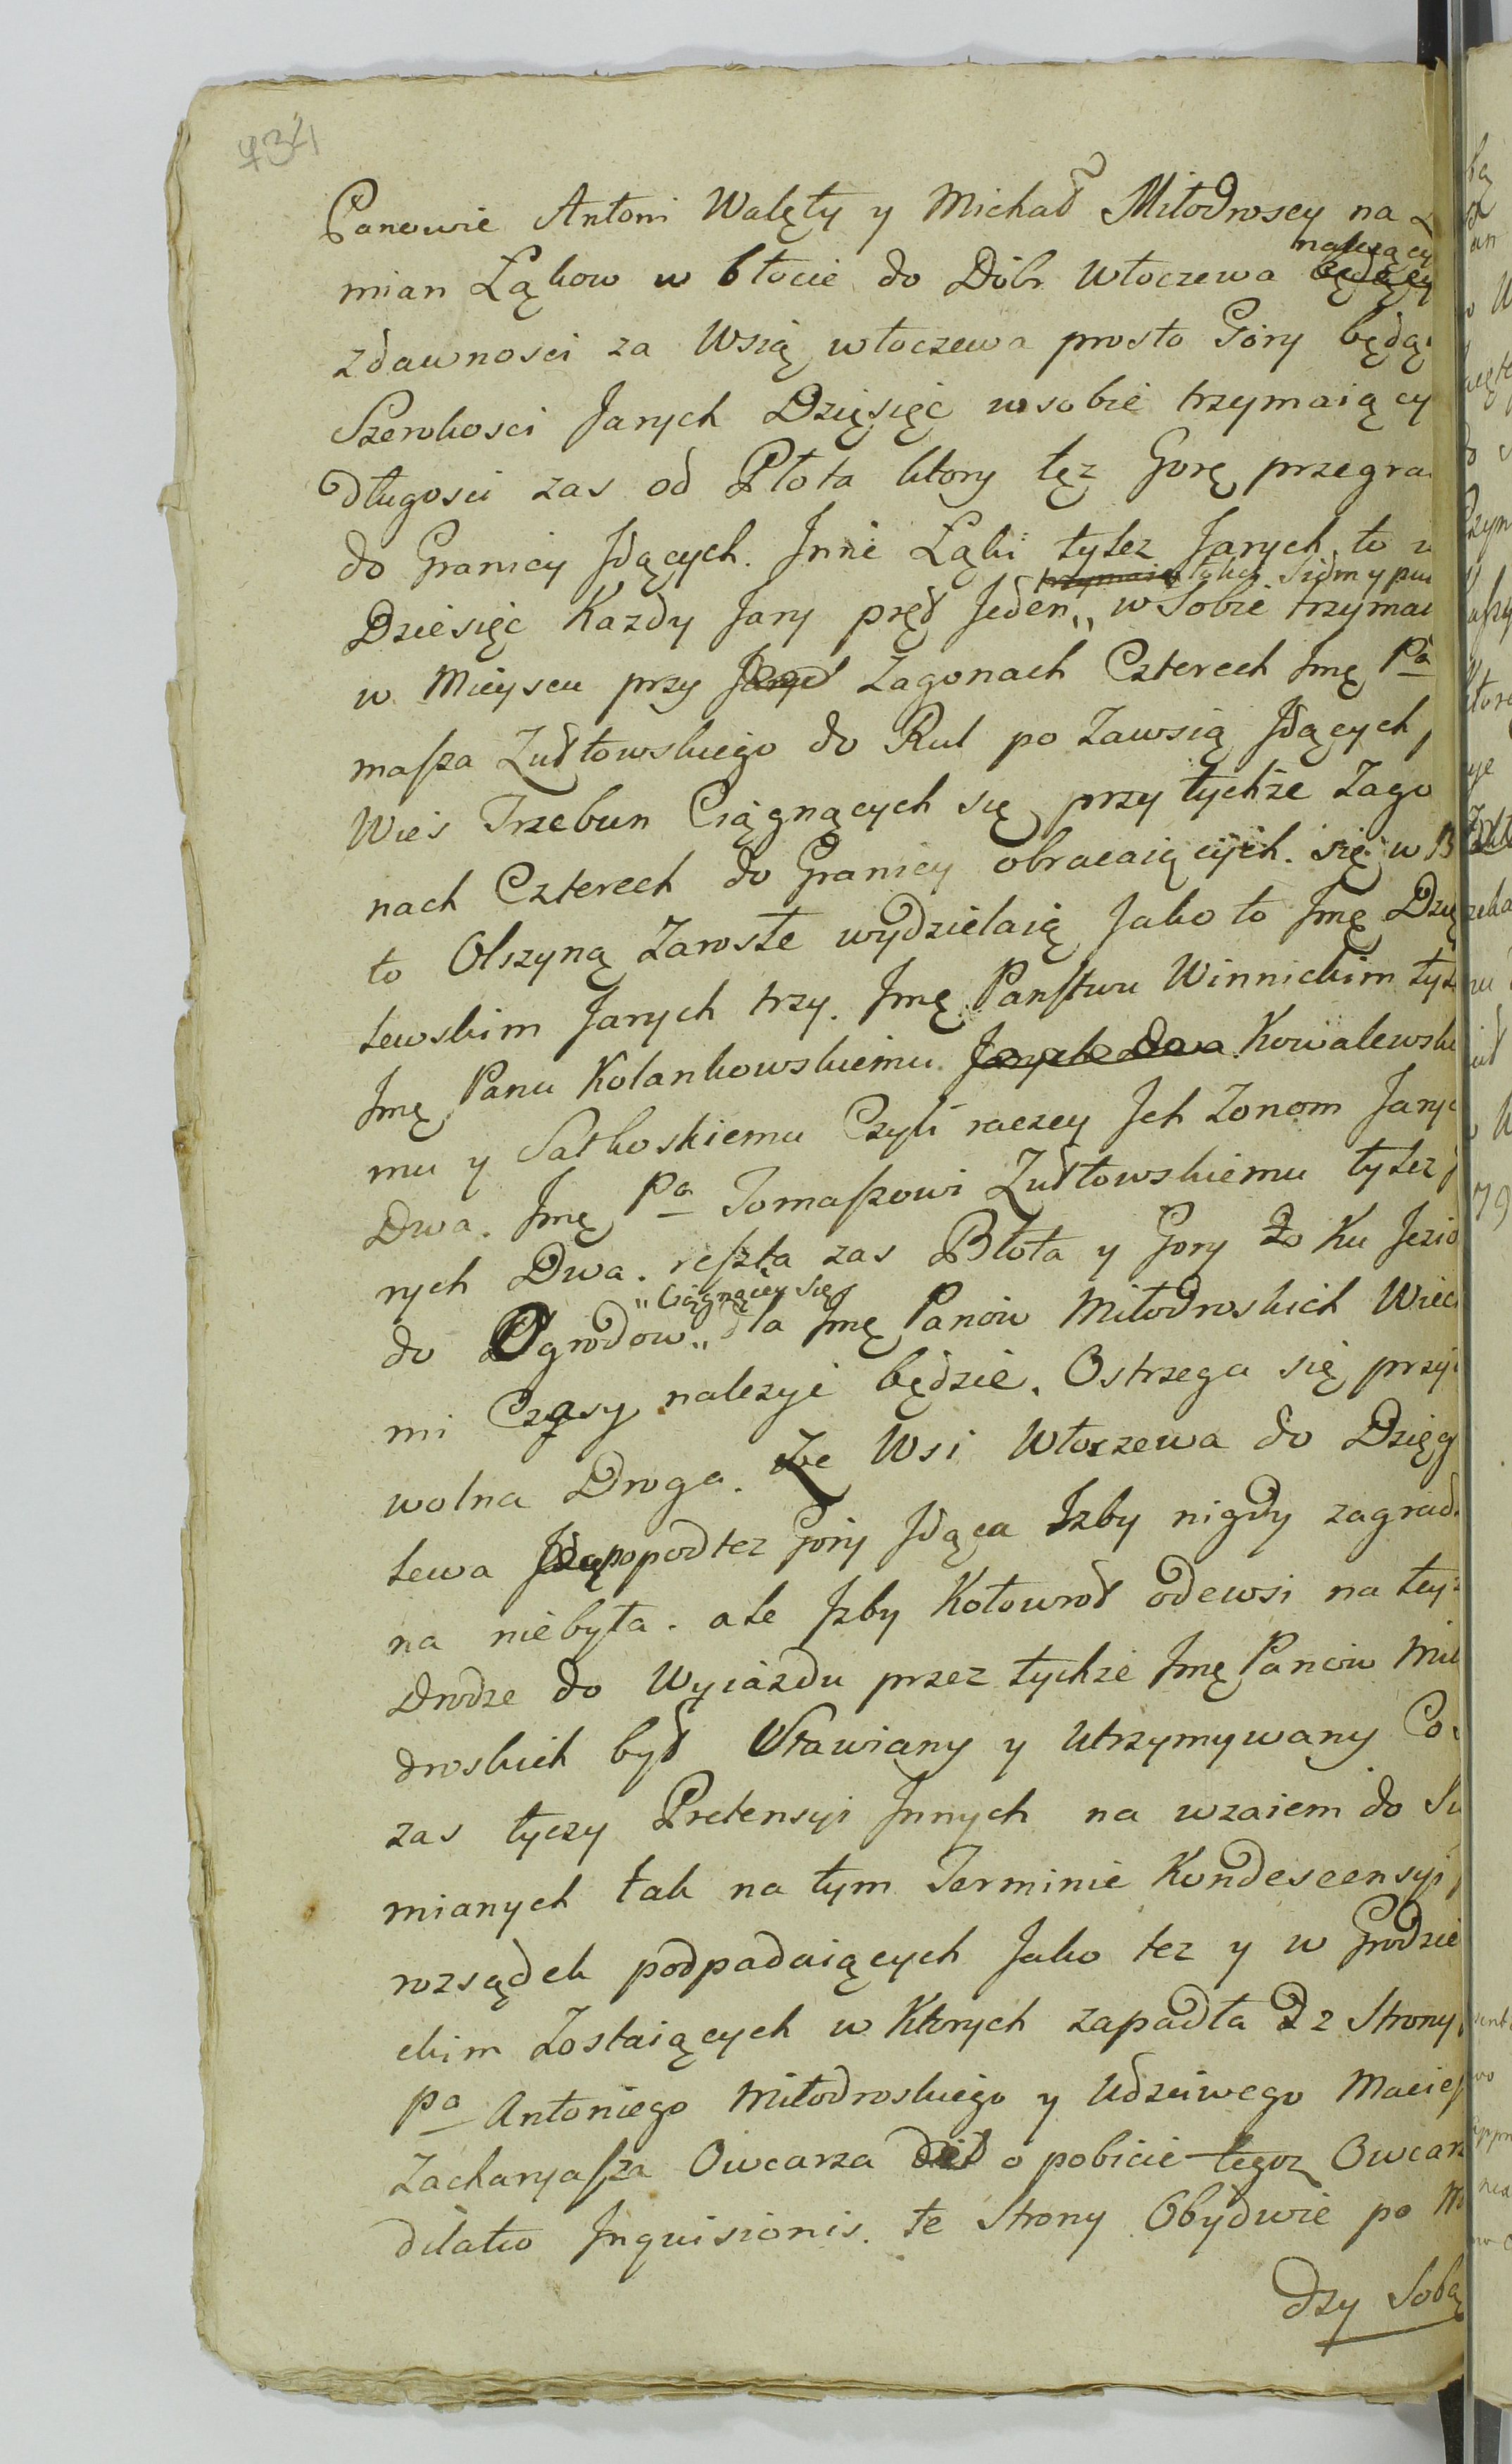 734
Panowie Antoni Walęty y Michał Miłodroscy na
mian Łąkow w błocie do Dóbr Włoczewa
zdawnosci za Wsią włoczewa prosto Góry będą
Szerokosci Jarych Dzięsięć wsobie trzymaiący
długosci zas od Płota ktory tęz Gorę przegra
do Granicy Jdących. Jnne Łąki tylez Jarych to
Dziesięć Kazdy Jary pręt Jeden „ w Sobie trzymai
w Mieyscu przy Zagonach Czterech Jmę Pa
maſza Zułtowskiego do Rul po Zawsią Jdących
Wieś Trzebun Ciągnących się przy tychże Zago
nach Czterech do Granicy obracaiących. się w B
to Olszyną Zarosłe wydzielaią Jako to Jmę Dzię
lewskim Jarych trzy. Jmę Panſtwu Winnickim tyle
Jmę Panu Kolankowskiemu. Jarych dwa Kowalewski
mu y Satkoskiemu Czyli raczey Jch Zonom Jary
Dwa. Jmę Pa Tomaſzowi Zułtowskiemu tylez J
rych Dwa. reſzta zas Błota y Gory Ku Jezio
„ Ciągnącey Się
do Ogrodow „ dla Jmę Panów Miłodroskich Wiec
mi Czasy nalezyć będzie. Ostrzega się przy
wolna Droga. Ze Wsi Włoczewa do Dzięg
lewa popod tez Góry Jdąca Jzby nigdy zagrad
na niebyła. ale Jzby Kołowrot odewsi na tey
Drodze do Wyiazdu przez tychże Jmę Panów Mił
droskich był Wstawiany y utrzymywany Co
zas tyczy Pretensyi Jnnych na wzaiem do Su
mianych tak na tym Terminie Kondescensyi
rozsądek podpadaiących Jako tez y w Grodzie
ckim Zostaiących w Ktorych zapadła Z Strony
Pa Antoniego Miłodroskiego y Udzciwego Maciey
Zacharyaſza Owcarza o pobicie tegoz Owcarz
dilatio Jnquisionis. te Strony Obydwie po M
dzy Sobą